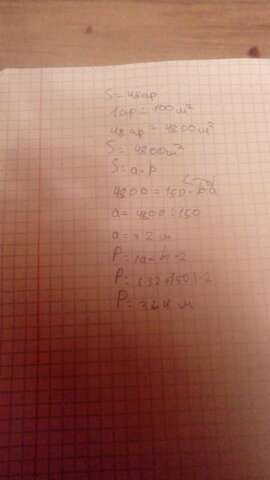 S = 48 ар
1 ар = 100 м²
48 ар = 4800 м²
S = 4800 м²
S = a · b
4800 = 150 ·
a = 4800 : 150
a = 32 м
P = (a + b) · 2
P = (32 + 150) · 2
P = 364 м